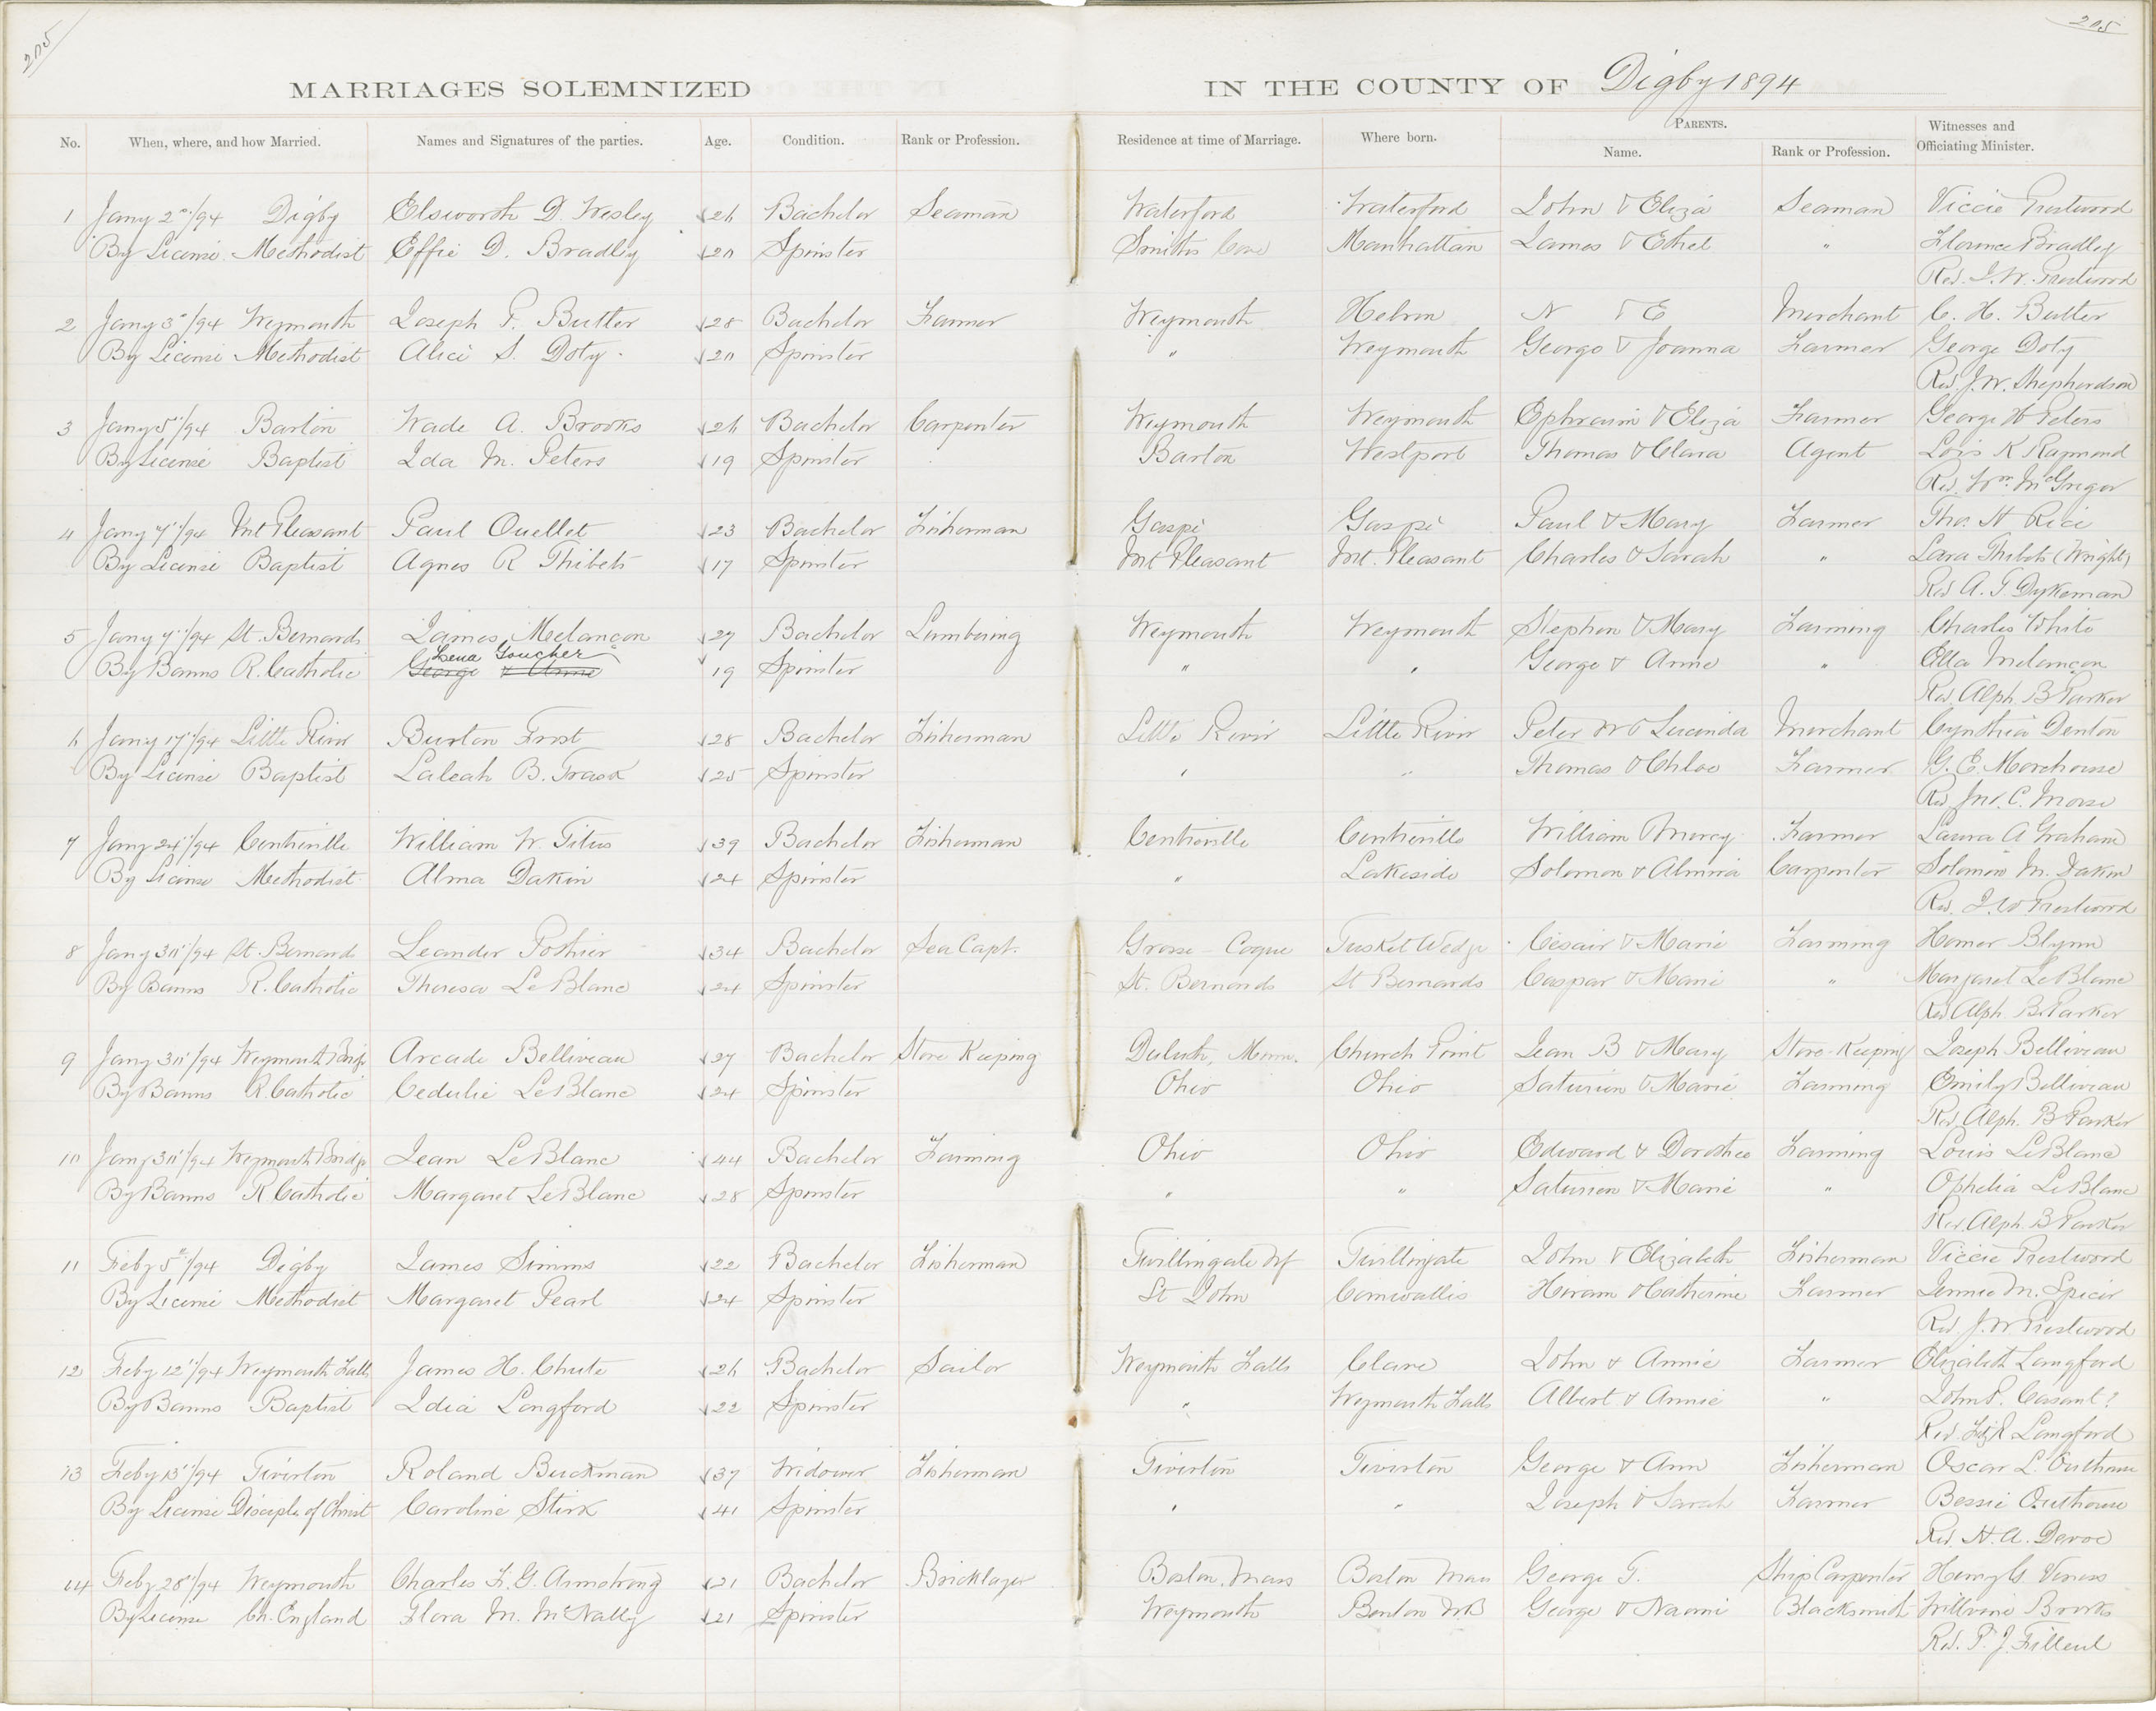 205
205
MARRIAGES SOLEMNIZED IN THE COUNTY OF Digby 1894
No. When, where, and how Married. Names and Signatures of the parties. Age. Condition. Rank or Profession. Residence at time of Marriage. Where born. PARENTS. Name. Rank or Profession. Witnesses and Officiating Minister.
1 Jany 2nd/94 Digby Elsworth D. Wesley 26 Bachelor Seaman Waterford Waterford John & Eliza Seaman Viccie Prestwood
By License Methodist Effie D. Bradley 20 Spinster Smiths Cove Manhattan James & Ethel " Florence Bradley
Rev. J. W. Prestwood
2 Jany 3"/94 Weymouth Joseph P. Butler 28 Bachelor Farmer Weymouth Hebron N & E Merchant C. H. Butler
By License Methodist Alice S. Doty 20 Spinster " Weymouth George & Joanna Farmer George Doty
Rev. J. W. Shepherdson
3 Jany 5"/94 Barton Wade A. Brooks 26 Bachelor Carpenter Weymouth Weymouth Ephraim & Eliza Farmer George H Peters
By License Baptist Ida M. Peters 19 Spinster Barton Westport Thomas & Clara Agent Lois K Raymond
Rev. Wm. McGregor
4 Jany 7"/94 Mt Pleasant Paul Ouellet 23 Bachelor Fisherman Gaspé Gaspé Paul & Mary Farmer Thos. H Rice
By License Baptist Agnes R Thibets 17 Spinster Mt Pleasant Mt. Pleasant Charles & Sarah " Lara Thibets (Wright)
Rev A. T. Dykeman
5 Jany 7"/94 St. Bernards James Melançon 27 Bachelor Lumbering Weymouth Weymouth Stephen & Mary Farming Charles White
Lena Goucher
By Banns R. Catholic George & Anne 19 Spinster " " George & Anne " Ella Melançon
Rev Alph. B Parker
6 Jany 17"/94 Little River Burton Frost 28 Bachelor Fisherman Little River Little River Peter W & Lucinda Merchant Cynthia Denton
By License Baptist Laleah B. Trask 25 Spinster " " Thomas & Chloe Farmer G. E. Morehouse
Rev Jno. C. Morse
7 Jany 24"/94 Centreville William W. Titus 39 Bachelor Fisherman Centreville Centreville William & Mercy Farmer Laura A Graham
By License Methodist Alma Dakin 24 Spinster " Lakeside Solomon & Almira Carpenter Solomon M. Dakin
Rev. J. W Prestwood
8 Jany 30"/94 St. Bernards Leander Pothier 34 Bachelor Sea Capt. Grosse-Coque Tusket Wedge Césair & Marie Farming Homer Blynn
By Banns R. Catholic Theresa LeBlanc 24 Spinster St. Bernards St Bernards Caspar & Marie " Margaret LeBlanc
Rev Alph B. Parker
9 Jany 30"/94 Weymouth Bridge Arcade Belliveau 27 Bachelor Store Keeping Duluth, Minn. Church Point Jean B & Mary Store-Keeping Joseph Belliveau
By Banns R. Catholic Cedulie LeBlanc 24 Spinster Ohio Ohio Saturien & Marie Farming Emily Belliveau
Rev Alph. B Parker
10 Jany 30"/94 Weymouth Bridge Jean LeBlanc 44 Bachelor Farming Ohio Ohio Edward & Dorothee Farming Louis LeBlanc
By Banns R Catholic Margaret LeBlanc 28 Spinster " " Saturien & Marie " Ophelia LeBlanc
Rev. Alph. B Parker
11 Feby 5"/94 Digby James Simms 22 Bachelor Fisherman Twillingate Nf Twillingate John & Elizabeth Fisherman Viccie Prestwood
By License Methodist Margaret Pearl 24 Spinster St John Cornwallis Hiram & Catherine Farmer Jennie M. Spicer
Rev. J. W Prestwood
12 Feby 12"/94 Weymouth Falls James H. Chute 26 Bachelor Sailor Weymouth Falls Clare John & Annie Farmer Elizabeth Langford
By Banns Baptist Idia Langford 22 Spinster " Weymouth Falls Albert & Annie " John P. Cassant?
Rev. Langford
13 Feby 13"/94 Tiverton Roland Buckman 37 Widower Fisherman Tiverton Tiverton George & Ann Fisherman Oscar L. Outhouse
By License Disciples of Christ Caroline Stirk 41 Spinster " " Joseph & Sarah Farmer Bessie Outhouse
Rev. H. A. Devoe
14 Feby 28"/94 Weymouth Charles F. G. Armstrong 21 Bachelor Bricklayer Boston, Mass Boston Mass George T. Ship Carpenter Henry G. Veness
By License Ch. England Flora M. McNally 21 Spinster Weymouth Benton NB George & Naomi Blacksmith Brooks
Rev. P. J. Filleul